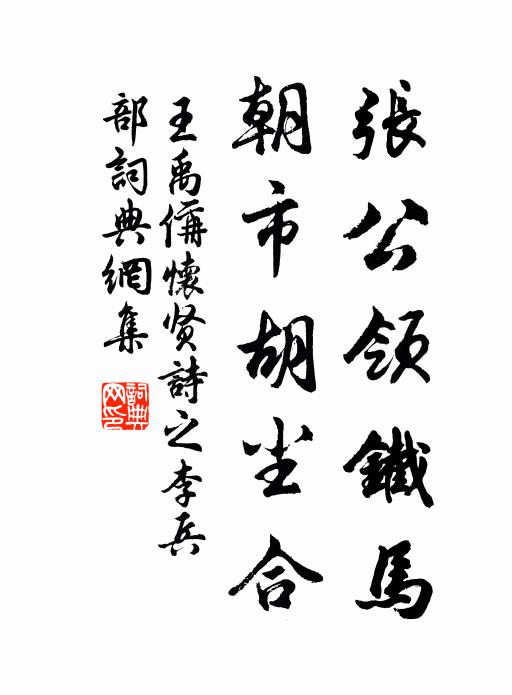 張公領鐵馬
朝市胡尘合
王禹偁懷贤詩之李兵
部詞典網集
詞典网印